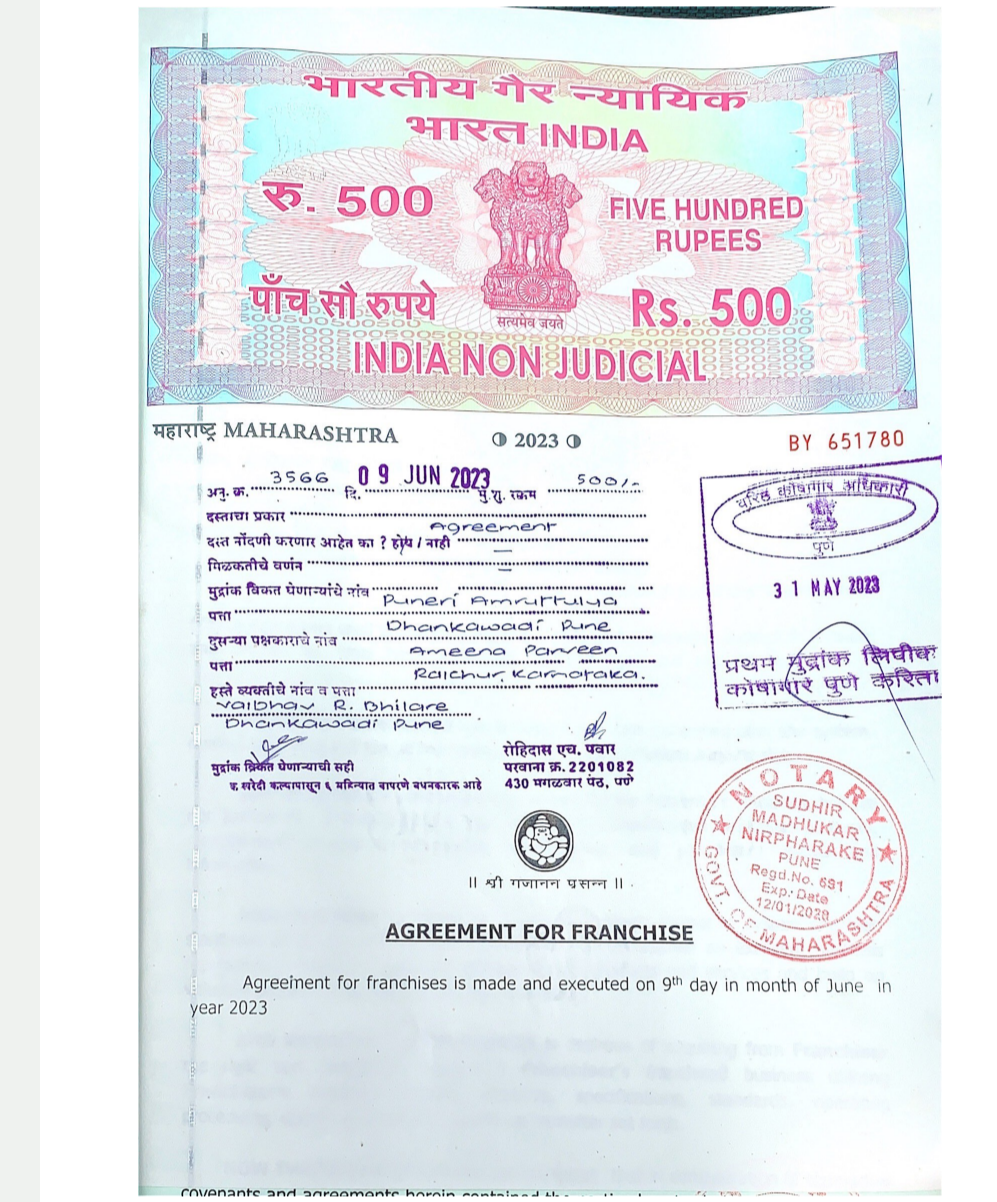 भारतीय गैर न्यायिक
भारत INDIA
रु. 500
FIVE HUNDRED
RUPEES
पाँच सौ रुपये
सत्यमेव जयते
Rs. 500
INDIA NON JUDICIAL
महाराष्ट्र MAHARASHTRA
2023
BY 651780
अनु. क्र. 3566 दि. 09 JUN 2023 मु.शु. रक्कम 500/-
दस्ताचा प्रकार Agreement
दस्त नोंदणी करणार आहेत का ? होय / नाही
मिळकतीचे वर्णन
मुद्रांक विकत घेणाऱ्यांचे नांव Puneri Amruttulya
पत्ता Dhankawadi Pune
दुसऱ्या पक्षकाराचे नांव Ameena Parveen
पत्ता Raichur, Karnataka.
हस्ते व्यक्तीचे नांव व पत्ता
Vaibhav R. Bhilare
Dhankawadi Pune
मुद्रांक विकत घेणाऱ्याची सही
खरेदी केल्यापासून ६ महिन्यात वापरणे बंधनकारक आहे
रोहिदास एच. पवार
परवाना क्र. 2201082
430 मंगळवार पेठ, पुणे
वरिष्ठ कोषागार अधिकारी
पुणे
31 MAY 2023
प्रथम मुद्रांक लिपीक
कोषागार पुणे करिता
NOTARY
SUDHIR
MADHUKAR
NIRPHARAKE
PUNE
Regd.No. 691
Exp.: Date
12/01/2028
GOVT. OF MAHARASHTRA
|| श्री गजानन प्रसन्न ||
AGREEMENT FOR FRANCHISE
Agreement for franchises is made and executed on 9th day in month of June in
year 2023
covenants and agreements herein contained the